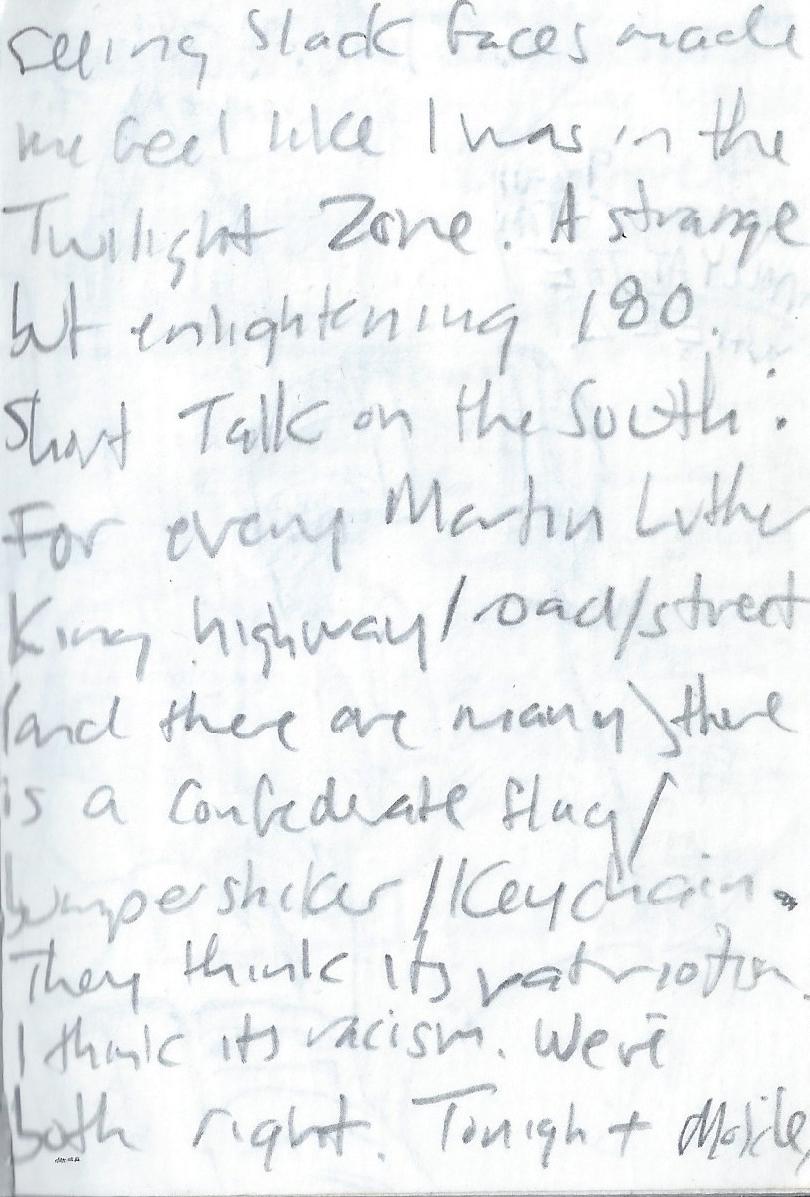 seeing slack faces made
me feel like I was in the
Twilight Zone. A strange
but enlightening 180.
Short Talk on the South:
For every Martin Luther
King highway/road/street
(and there are many) there
is a confederate flag/
bumpersticker/Keychain.
They think its patriotism.
I think its racism. We're
both right. Tonight Mobile,